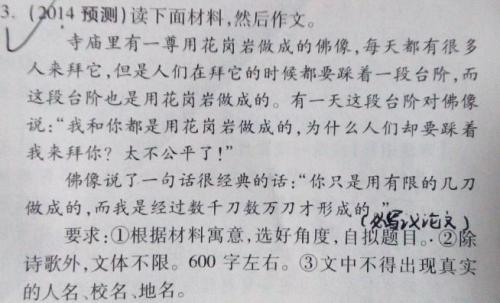 3. (2014 预测)读下面材料,然后作文。
寺庙里有一尊用花岗岩做成的佛像,每天都有很多
人来拜它,但是人们在拜它的时候都要踩着一段台阶,而
这段台阶也是用花岗岩做成的。有一天这段台阶对佛像
说:“我和你都是用花岗岩做成的,为什么人们却要踩着
我来拜你? 太不公平了!”
佛像说了一句话很经典的话:“你只是用有限的几刀
做成的,而我是经过数千刀数万刀才形成的。”
(必写议论文)
要求:①根据材料寓意,选好角度,自拟题目。·②除
诗歌外,文体不限。600 字左右。③文中不得出现真实
的人名、校名、地名。